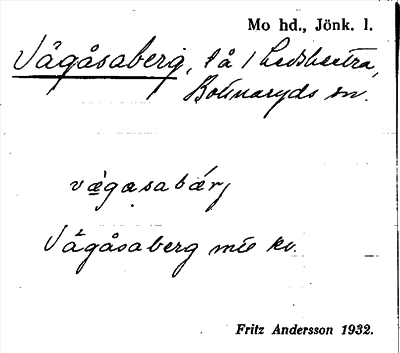 Mo hd., Jönk. l.
Vågåsaberg, lå
Bottnaryds sn.
vågasabärj
Vågåsaberg
Fritz Andersson 1932.